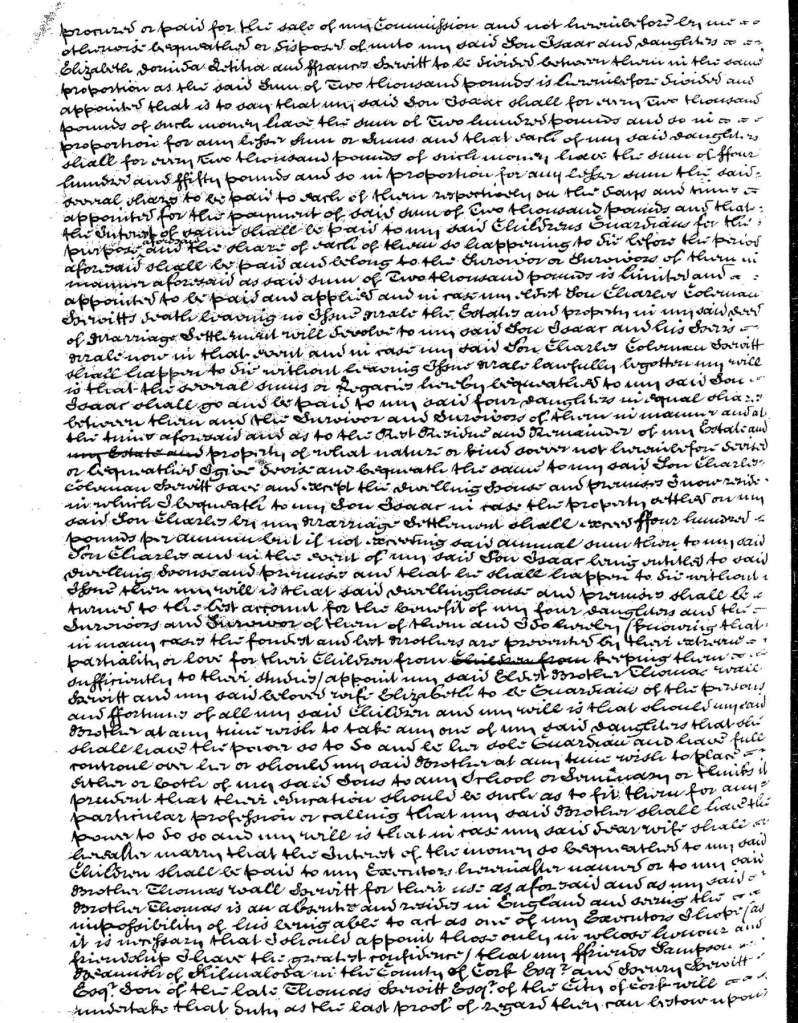 procured or paid for the sale of my Commission and not hereinbefore by me
otherwise bequeathed or disposed of unto my said Son Isaac and daughters
Elizabeth Dorinda Letitia and ffrances Hewitt to be divided between them in the same
proportion as the said Sum of Two thousand pounds is hereinbefore divided and
appointed that is to say that my said Son Isaac shall for every Two thousand
pounds of such money have the sum of Two hundred pounds and so in
proportion for any lesser Sum or Sums and that each of my said daughters
shall for every Two thousand pounds of such money have the sum of ffour
hundred and ffifty pounds and so in proportion for any lesser sum the said
several shares to be paid to each of them respectively on the days and times
appointed for the payment of said sum of Two thousand pounds and that
the Interest of same shall be paid to my said Childrens Guardians for the
purpose aforesaid and the share of each of them so happening to die before the period
aforesaid shall be paid and belong to the Survivor or Survivors of them in
manner aforesaid as said sum of Two thousand pounds is limited and a
appointed to be paid and applied and in case my eldest Son Charles Coleman
Hewitts death leaving no Issue Male the Estates and property in my said deed
of Marriage Settlement will devolve to my said Son Isaac and his Heirs
Male now in that event and in case my said Son Charles Coleman Hewitt
shall happen to die without leaving Issue Male lawfully begotten my will
is that the several sums or Legacies hereby bequeathed to my said Son
Isaac shall go and be paid to my said four daughters in equal shares
between them and the Survivor and Survivors of them in manner and at
the times aforesaid and as to the Rest Residue and Remainder of my Estate and
my Estate and property of what nature or kind soever not hereinbefore devised
or bequeathed I give devise and bequeath the same to my said Son Charles
Coleman Hewitt save and except the dwelling House and premises I now reside
in which I bequeath to my Son Isaac in case the property settled on my
said Son Charles by my Marriage Settlement shall exceed ffour hundred
pounds per annum but if not exceeding said annual sum then to my said
Son Charles and in the event of my said Son Isaac being entitled to said
dwelling House and premises and that he shall happen to die without
Issue then my will is that said dwellinghouse and premises shall be
turned to the best account for the benefit of my four daughters and the
Survivors and Survivor of them of them and I do hereby (knowing that
in many cases the fondest and best Mothers are prevented by their extreme
partiality or love for their Children from Children from keeping them
sufficiently to their studies) appoint my said Eldest Brother Thomas Wall
Hewitt and my said beloved wife Elizabeth to be Guardians of the persons
and ffortunes of all my said Children and my will is that should my said
Brother at any time wish to take any one of my said daughters that she
shall have the power so to do and be her sole Guardian and have full
controul over her or should my said Brother at any time wish to place
either or both of my said Sons to any School or Seminary or thinks it
prudent that their education should be such as to fit them for any
particular profession or calling that my said Brother shall have the
power to do so and my will is that in case my said dear wife shall
hereafter marry that the Interest of the money so bequeathed to my said
Children shall be paid to my Executors hereinafter named or to my said
Brother Thomas Wall Hewitt for their use as aforesaid and as my said
Brother Thomas is an absentee and resides in England and seeing the
impossibility of his being able to act as one of my Executors I hope (as
it is necessary that I should appoint those only in whose honour and
friendship I have the greatest confidence) that my ffriends Sampson
Beamish of Kilmaloda in the County of Cork Esqr. and Henry Hewitt
Esqr. Son of the late Thomas Hewitt Esqr. of the City of Cork will
undertake that duty as the last proof of regard they can bestow upon